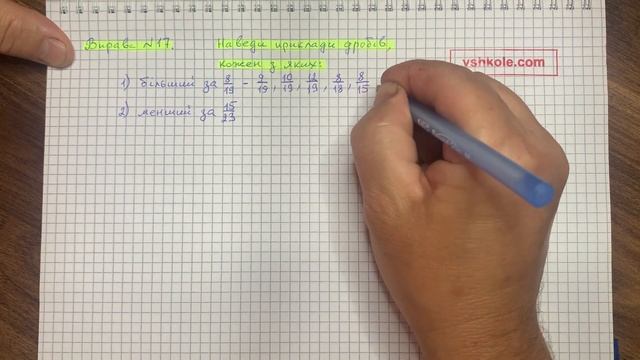 Вправа №17. Наведи приклади дробів,
кожен з яких:
vshkole.com
1) більший за 8/19 - 9/19, 10/19, 12/19, 8/18, 8/15
2) менший за 15/23